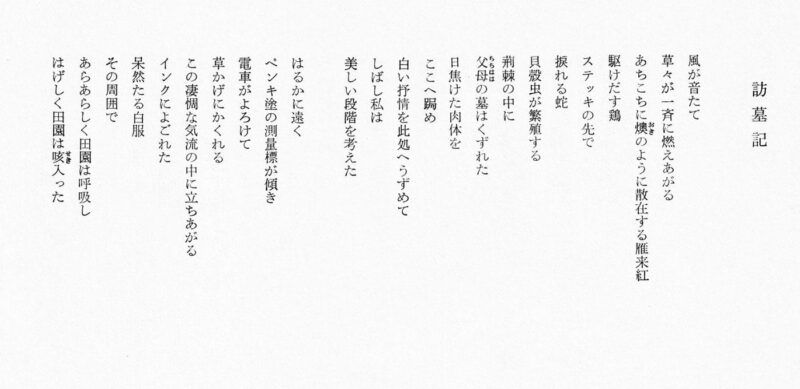 訪墓記
風が音たて
草々が一斉に燃えあがる
あちこちに燠のように散在する雁来紅
駆けだす鶏
ステッキの先で
捩れる蛇
貝殻虫が繁殖する
荊棘の中に
父母の墓はくずれた
日焦けた肉体を
ここへ跼め
白い抒情を此処へうずめて
しばし私は
美しい段階を考えた
はるかに遠く
ペンキ塗の測量標が傾き
電車がよろけて
草かげにかくれる
この凄惆な気流の中に立ちあがる
インクによごれた
呆然たる白服
その周囲で
あらあらしく田園は呼吸し
はげしく田園は咳入った